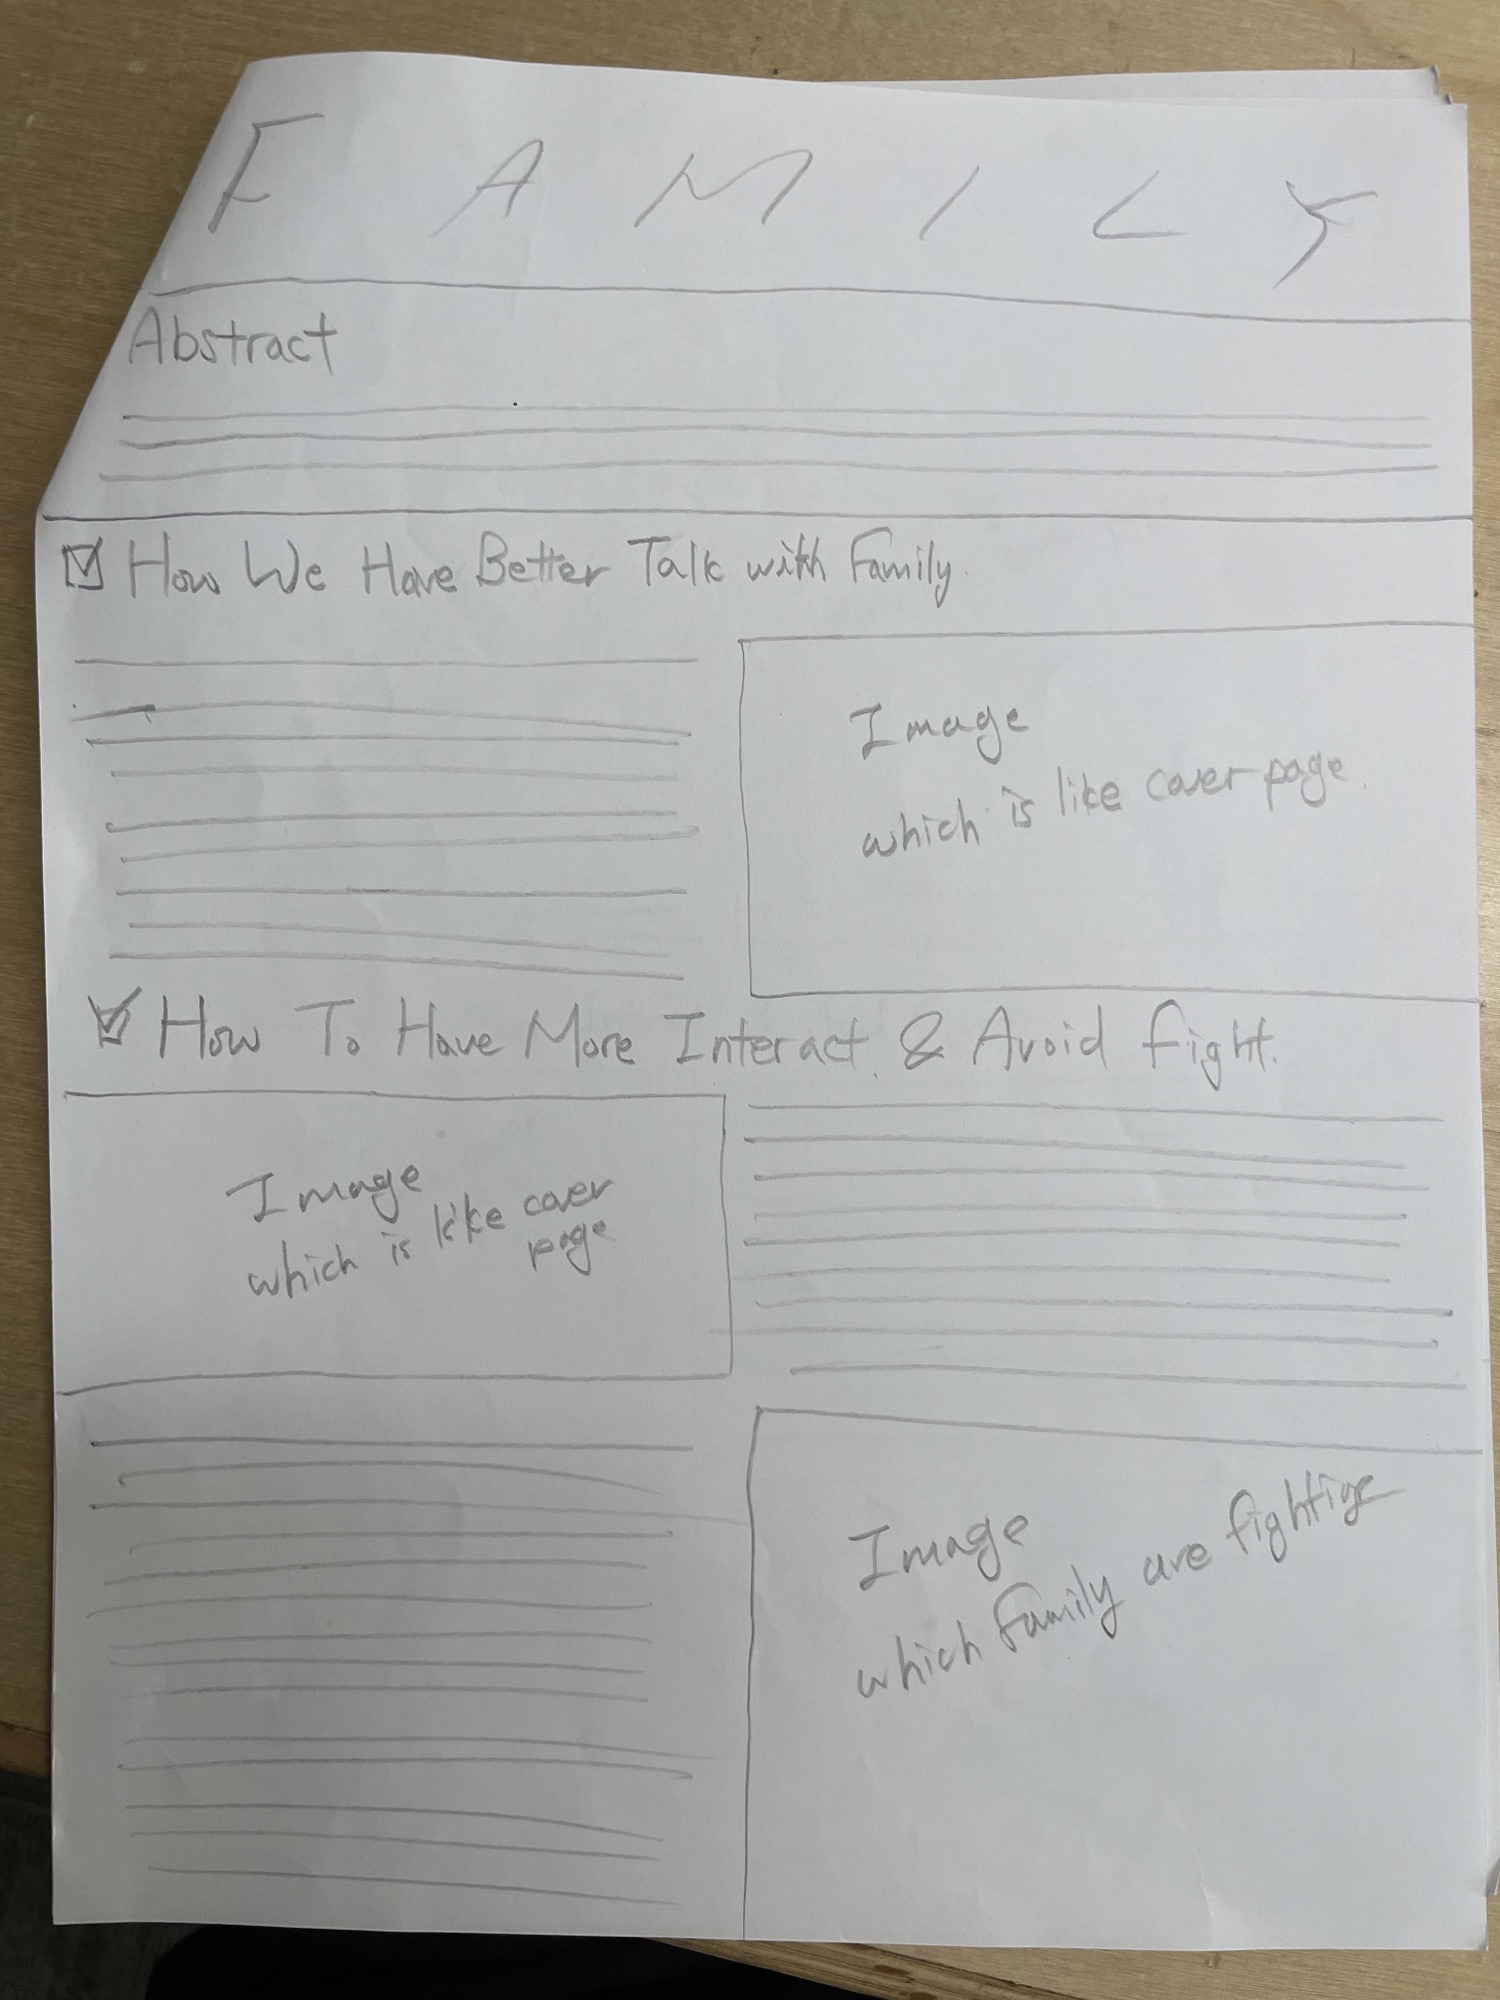 FAMILY
Abstract
How We Have Better Talk with Family.
Image
which is like cover page.
How To Have More Interact. & Avoid Fight.
Image
which is like cover
page
Image
which Family are fightige